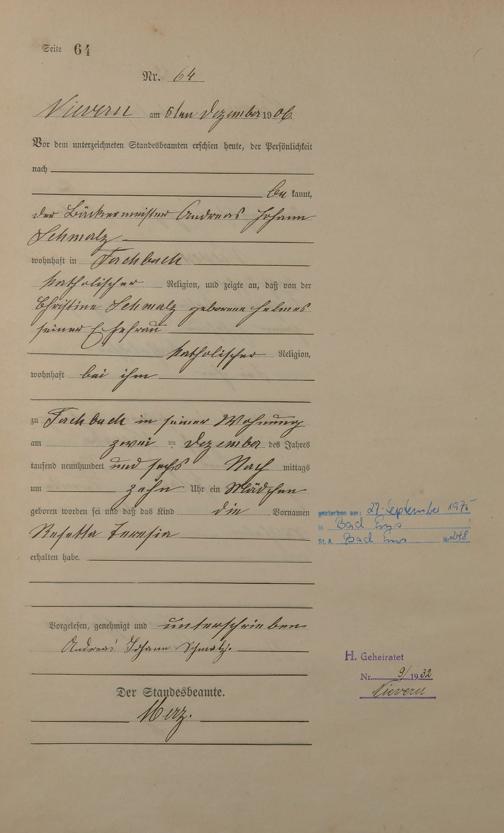 Seite 64
Nr. 64
Nievern am 5ten Dezember 1906.
Vor dem unterzeichneten Standesbeamten erschien heute, der Persönlichkeit
nach
be kannt,
der Bäckermeister Andreas Johann
Schmalz
wohnhaft in Fachbach
katholischer Religion, und zeigte an, daß von der
Christine Schmalz geborene Helmes
seiner Ehefrau
katholischer Religion,
wohnhaft bei ihm
zu Fachbach in seiner Wohnung
am zwei ten Dezember des Jahres
tausend neunhundert und sechs Nach mittags
um zehn Uhr ein Mädchen
geboren worden sei und daß das Kind die Vornamen
Rosetta Teresia
erhalten habe.
Vorgelesen, genehmigt und unterschrieben
Andreas Johann Schmalz.
Der Standesbeamte.
Merz.
gestorben am: 27. September 1975
in Bad Ems
St.A. Bad Ems
H. Geheiratet
Nr. 9/1932
Nievern